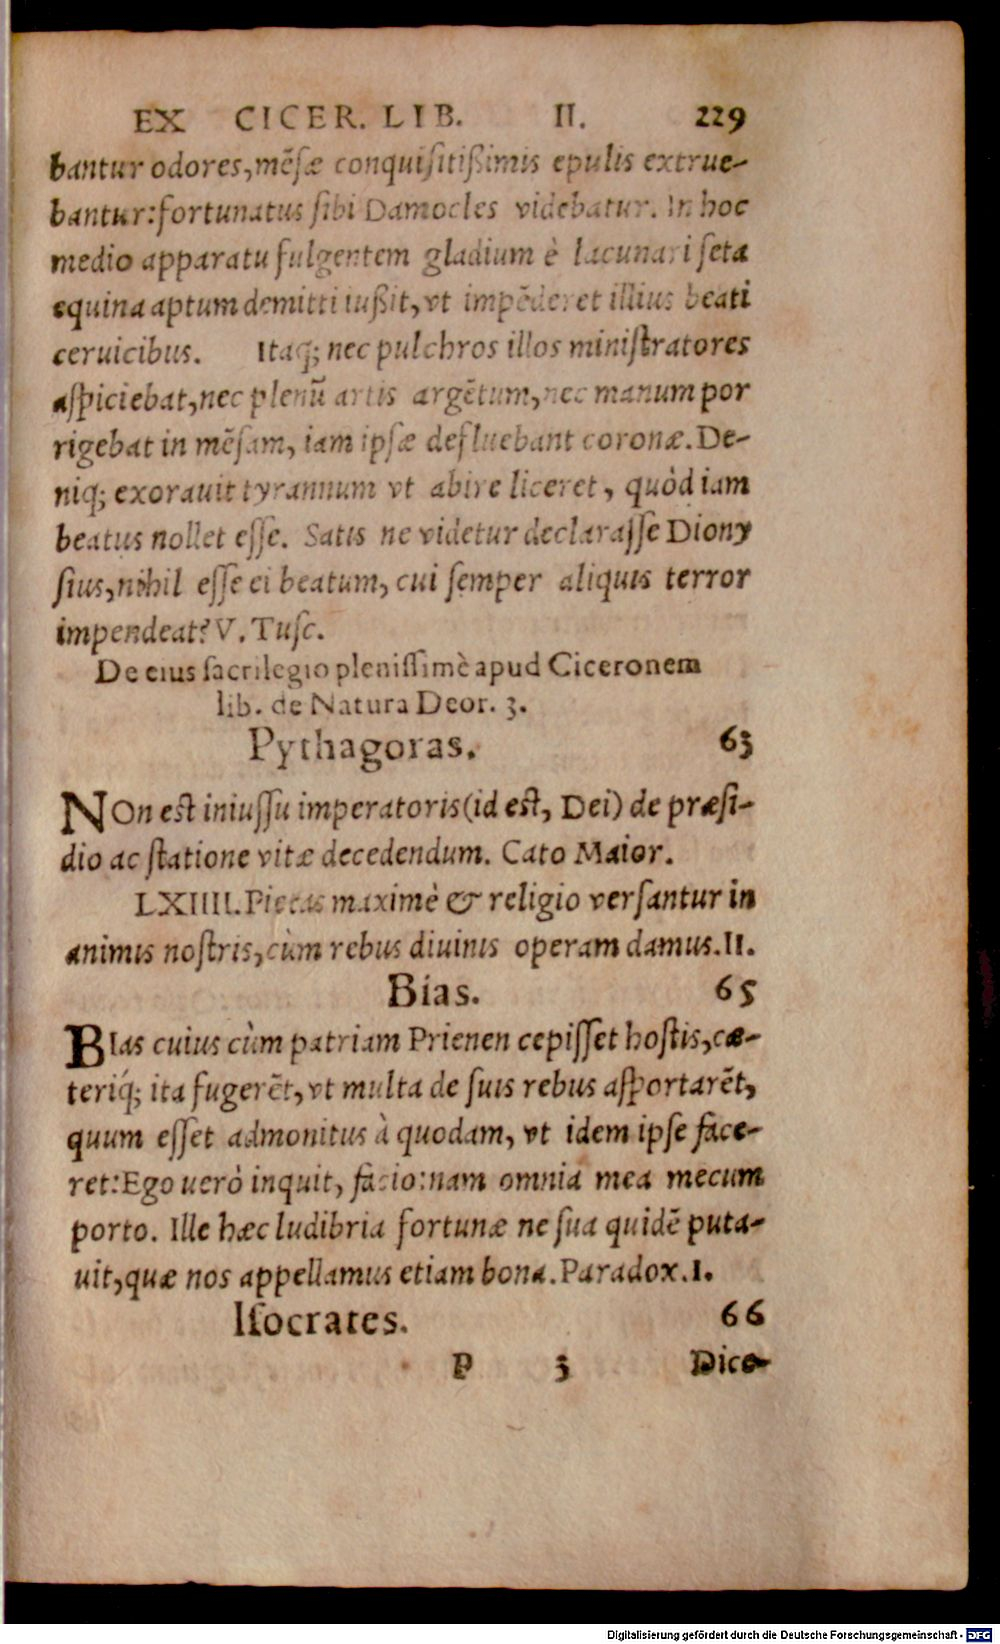 EX CICER. LIB. II. 229
bantur odores, mēsæ conquisitißimis epulis extrue-
bantur: fortunatus sibi Damocles videbatur. In hoc
medio apparatu fulgentem gladium è lacunari seta
equina aptum demitti iußit, vt impēderet illius beati
ceruicibus. Itaq; nec pulchros illos ministratores
aspiciebat, nec plenū artis argētum, nec manum por
rigebat in mēsam, iam ipsæ defluebant coronæ. De-
niq; exorauit tyrannum vt abire liceret, quòd iam
beatus nollet esse. Satis ne videtur declarasse Diony
sius, nihil esse ei beatum, cui semper aliquis terror
impendeat? V. Tusc.
De eius sacrilegio plenissimè apud Ciceronem
lib. de Natura Deor. 3.
Pythagoras. 63
NOn est iniussu imperatoris (id est, Dei) de præsi-
dio ac statione vitæ decedendum. Cato Maior.
LXIIII. Pietas maximè & religio versantur in
animis nostris, cùm rebus diuinis operam damus. II.
Bias. 65
BIas cuius cùm patriam Prienen cepisset hostis, cæ-
teriq́; ita fugerēt, vt multa de suis rebus asportarēt,
quum esset admonitus à quodam, vt idem ipse face-
ret: Ego uerò inquit, facio: nam omnia mea mecum
porto. Ille hæc ludibria fortunæ ne sua quidē puta-
uit, quæ nos appellamus etiam bona. Paradox. I.
Isocrates. 66
P 3 Dice-
Digitalisierung gefördert durch die Deutsche Forschungsgemeinschaft - DFG